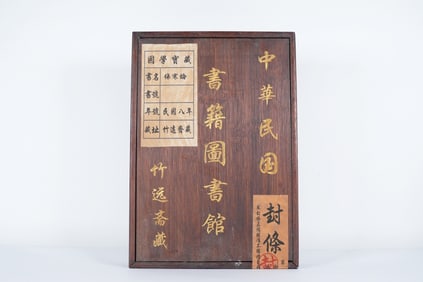 中華民国
書籍圖書館
國學寶藏
書名 傷寒論
書號
年號 民國八年
藏址 竹遠齋藏
竹远斋藏
封條